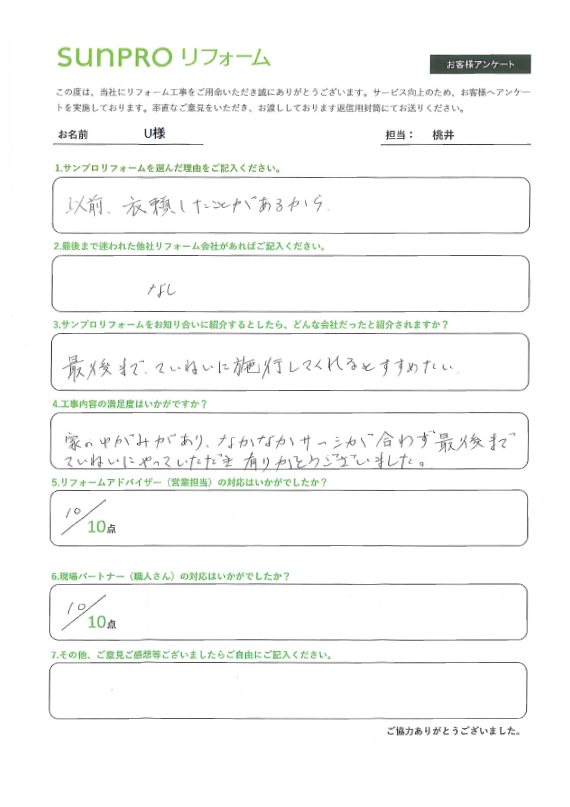 SUNPRO リフォーム
お客様アンケート
この度は、当社にリフォーム工事をご用命いただき誠にありがとうございます。サービス向上のため、お客様へアンケー
トを実施しております。率直なご意見をいただき、お渡ししております返信用封筒にてお送りください。
お名前 U様 担当： 桃井
1.サンプロリフォームを選んだ理由をご記入ください。
以前、衣頼したことがあるから.
2.最後まで迷われた他社リフォーム会社があればご記入ください。
なし
3.サンプロリフォームをお知り合いに紹介するとしたら、どんな会社だったと紹介されますか？
最後まで、ていねいに施行してくれるとすすめたい.
4.工事内容の満足度はいかがですか？
家のゆがみがあり、なかなかサッシが合わず最後まで
ていねいにやっていただき有りがとうございました。
5.リフォームアドバイザー（営業担当）の対応はいかがでしたか？
10/10点
6.現場パートナー（職人さん）の対応はいかがでしたか？
10/10点
7.その他、ご意見ご感想等ございましたらご自由にご記入ください。
ご協力ありがとうございました。